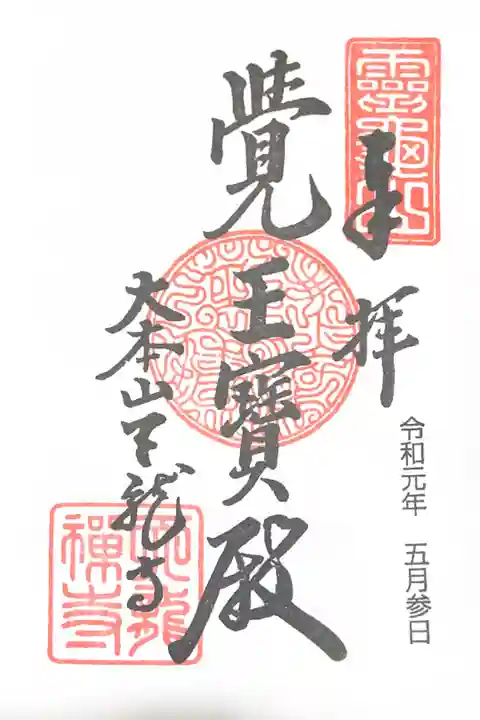 奉拝
令和元年 五月参日
覺王寶殿
大本山天龍寺
靈龜山
天龍禪寺